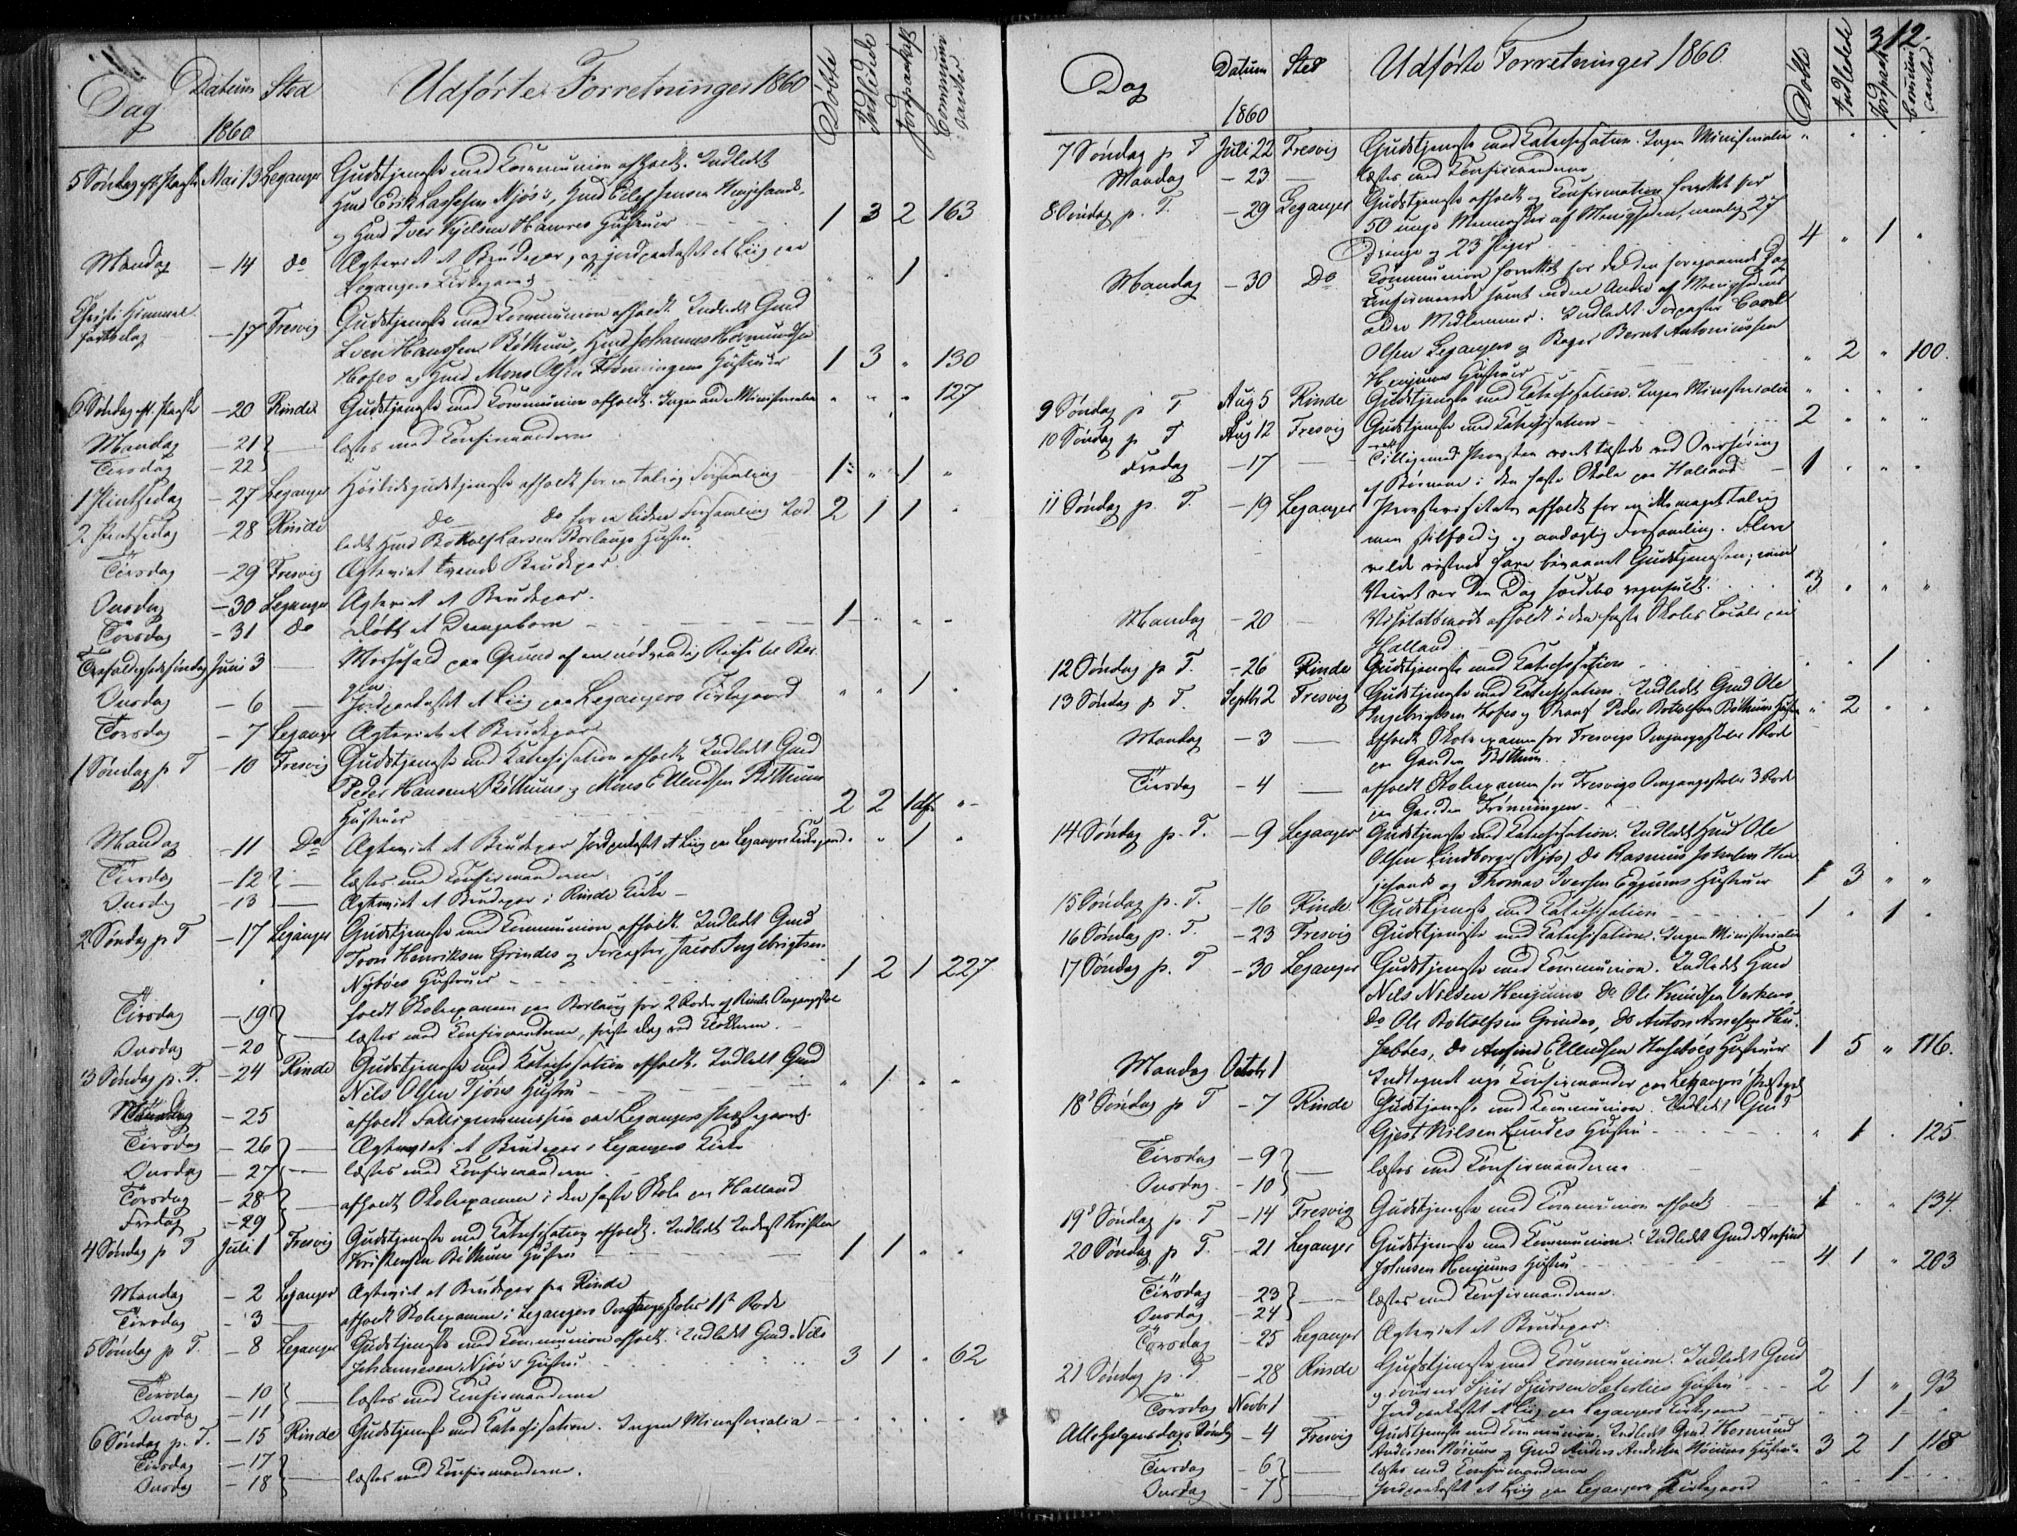 Dag Datum 1860 Sted Udførte Forretninger 1860 Døbte Indledede Jordpaakast Communicanter
5 Søndag eft. Paaske Mai 13 Leganger Gudstjeneste med Communion afholdt. Indledt
Gmd Erik Lassesen Njøs's, Gmd Eilef Jensen Henjesands
og Gmd Iver Njelsen Hamres Hustruer 1 3 2 163
Mandag - 14 do Agteviet et Brudepar, og jordpaakastet et Liig paa
Legangers Kirkegaard " " 1 "
Christi Himmel
fartsdag - 17 Fresvig Gudstjeneste med Communion afholdt. Indledt Gmd
Sven Hanssen Bøthun, Gmd Johannes Hermundsen
Hofes og Gmd Mons Olsen Frønningens Hustruer 1 3 " 130
6 Søndag eft. Paaske - 20 Rinde Gudstjeneste med Communion afholdt. Ingen andre Ministerialia " " " 127
Mandag - 21
Tirsdag - 22 læstes med Confirmanderne
1 Pintsedag - 27 Leganger Høitidsgudstjeneste afholdt for en talrig Forsamling 1 " 1 "
2 Pintsedag - 28 Rinde do do for en liden Forsamling. Ind- 2 1 1 "
ledt Gmd Botholf Larsen Borlaugs Hustru
Tirsdag - 29 Fresvig Agteviet tvende Brudepar
Onsdag - 30 Leganger Agteviet et Brudepar.
Torsdag - 31 do Døbt et Drengebarn 1 " " "
Trefoldighedssøndag Juni 3 Messefald paa Grund af en nødvendig Reise til Ber-
gen
Onsdag - 6 Jordpaakastet et Liig paa Legangers Kirkegaard " " 1 "
Torsdag - 7 Leganger Agteviet et Brudepar
1 Søndag p T - 10 Fresvig Gudstjeneste med Katechisation afholdt. Indledt Gmd
Peder Hansen Bøthuns og Mons Ellendsen Bøthuns
Hustruer 2 2 1 "
Mandag - 11 Do Agteviet et Brudepar Jordpaakastet et Liig paa Legangers Kirkegaard " " 1 "
Tirsdag - 12 læstes med Confirmanderne
Onsdag - 13 Agteviet et Brudepar i Rinde Kirke
2 Søndag p T - 17 Leganger Gudstjeneste med Communion afholdt. Indledt Gmd
Henriksen Grindes og Forpagter Jacob Ingebrigtsen
Nybøes Hustruer 1 2 1 227
Tirsdag - 19 holdt Skoleexamen paa Borlaug for 2 Roder af Rinde Omgangsskole
Onsdag - 20 læstes med Confirmanderne, første Dag ved Klokkeren
3 Søndag p. T. - 24 Rinde Gudstjeneste med Katechisation afholdt. Indledt Gmd
Nils Olsen Tjøns Hustru " 1 " "
Mandag - 25 afholdt Fattigcommission paa Legangers Præstegaard.
Tirsdag - 26 Agteviet et Brudepar i Legangers Kirke
Onsdag - 27 læstes med Confirmanderne
Torsdag - 28
Fredag - 29 afholdt Skoleexamen i den faste Skole paa Halland
4 Søndag p T Juli 1 Fresvig Gudstjeneste med Katechisation afholdt. Indledt Inderst Kristen
Kristensen Bøthuns Hustru 1 1 " "
Mandag - 2 Leganger Agteviet et Brudepar fra Rinde
Tirsdag - 3 afholdt Skoleexamen i Legangers Omgangsskoles 1st Rode
5 Søndag p T. - 8 Leganger Gudstjeneste med Communion afholdt. Indledt Gmd Nils
Johannesen Njøs's Hustru 3 1 " 62
Tirsdag - 10
Onsdag - 11 læstes med Confirmanderne
6 Søndag p. T. - 15 Rinde Gudstjeneste med Katechisation. Ingen Ministerialia
Tirsdag - 17
Onsdag - 18 læstes med Confirmanderne.
312.
Dag Datum 1860 Sted Udførte Forretninger 1860. Døbte Indledede Jordpaak. Communicanter
7 Søndag p. T Juli 22 Fresvig Gudstjeneste med Katechisation. Ingen Ministerialia
Mandag - 23 læstes med Confirmanderne
8 Søndag p. T. - 29 Leganger Gudstjeneste afholdt og Confirmation forrettet for
50 unge Mennesker af Menigheden, nemlig 27
Drenge og 23 Piger 4 " 1 "
Mandag - 30 Do Communion forrettet for de den foregaaende Dag
Confirmerede samt endeel Andre af Menighedens
ældre Medlemmer. Indledt Forpagter Carl
Olsen Legangers og Bager Bernt Antoniussen
Henjums Hustruer " 2 " 100.
9 Søndag p T Aug 5 Rinde Gudstjeneste med Katechisation. Ingen Ministerialia
10 Søndag p T Aug 12 Fresvig Gudstjeneste med Katechisation 2 " " "
Fredag - 17 Tilligemed Provsten tilstede ved Overhøring
af Børnene i den faste Skole paa Halland 1 " " "
11 Søndag p. T. - 19 Leganger Provstevisitats afholdt for en ikke meget talrig
men stilfærdig og andægtig Forsamling. Flere
vilde vistnok have bivaanet Gudstjenesten; men
Veiret var den Dag særdeles regnfuldt. 3 " " "
Mandag - 20 Visitatsmøde afholdt i den faste Skoles Locale paa
Halland
12 Søndag p T. - 26 Rinde Gudstjeneste med Katechisation " " 1 "
13 Søndag p T. Septbr 2 Fresvig Gudstjeneste med Katechisation. Indledt Gmd Ole
Ingebrigtsen Hofes og Peder Botolfsen Bøthuns Hustru " 2 " "
Mandag - 3 afholdt Skoleexamen for Fresvigs Omgangsskoles 1 Rode
paa Gaarden Bøthun
Tirsdag - 4 afholdt Skoleexamen for Fresvigs Omgangsskoles 3 Rode
paa Gaarden Frønningen
14 Søndag p. T. - 9 Leganger Gudstjeneste med Katechisation. Indledt Hmd Ole
Olsen Lindborg (Njøs), do Rasmus Johnsen Hen-
jesands og Thomas Iversen Eggums Hustruer 1 3 " "
15 Søndag p. T. - 16 Rinde Gudstjeneste med Katechisation 1 " 1 "
16 Søndag p. T. - 23 Fresvig Gudstjeneste med Katechisation. Ingen Ministerialia
17 Søndag p. T - 30 Leganger Gudstjeneste med Communion. Indledt Gmd
Nils Nilsen Henjums do Ole Knudsen
do Ole Bottolfsen Grindes, do Anton Arnesen Hu-
sebøes, do Anfind Ellendsen Husebøes Hustruer 1 5 " 116.
Mandag Octobr 1 Indtegnet nye Confirmander paa Legangers Præstegd
18 Søndag p T - 7 Rinde Gudstjeneste med Communion. Indledt Gmd
Gjest Nilsen Lundes Hustru " 1 " 125
Tirsdag - 9
Onsdag - 10 læstes med Confirmanderne
19 Søndag p. T - 14 Fresvig Gudstjeneste med Communion afholdt 1 " " 134.
20 Søndag p T. - 21 Leganger Gudstjeneste med Communion. Indledt Gmd Anfind
Johnsen Henjums Hustru 4 1 " 203
Tirsdag - 23
Onsdag - 24 læstes med Confirmanderne.
Torsdag - 25 Leganger Agteviet et Brudepar.
21 Søndag p. T - 28 Rinde Gudstjeneste med Communion. Indledt Gmd
Sjur Sjursen Hustru 2 1 " 93
Torsdag Novbr 1 Jordpaakastet et Liig paa Legangers Kirkegaard " " 1 "
Allehelgensdags Søndag - 4 Fresvig Gudstjeneste med Communion. Indledt Gmd Hermund
Andersen Nøruns og Gmd Anders Andersen Nøruns Hustruer 3 2 1 118
Tirsdag - 6 læstes med Confirmanderne
Onsdag - 7 Jordpaakastet et Liig paa Legangers Kirkegaard " " 1 "